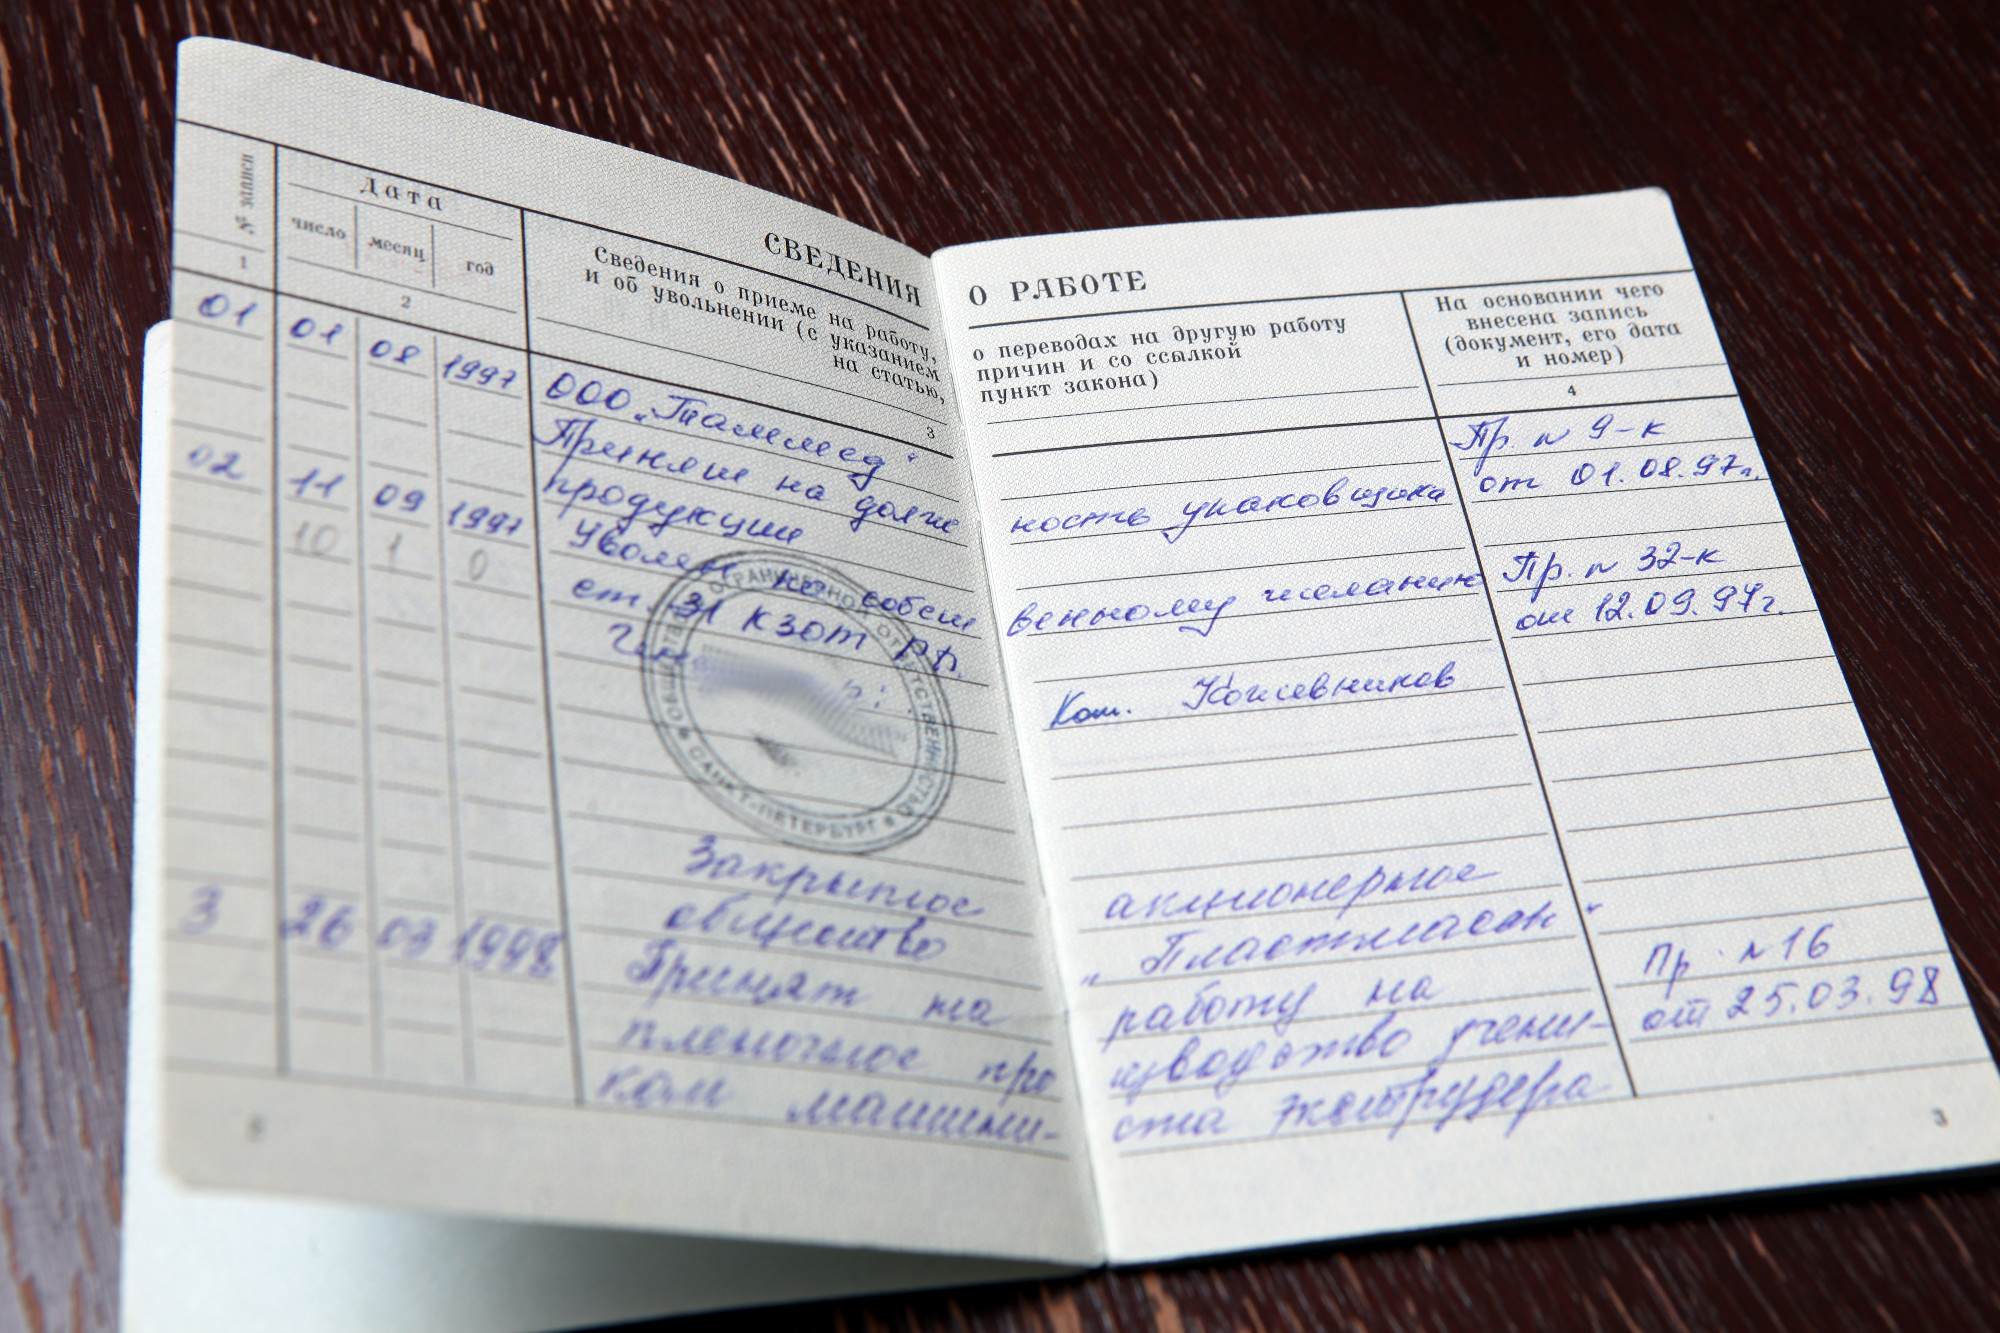 СВЕДЕНИЯ О РАБОТЕ
№ записи
Дата
число месяц год
Сведения о приеме на работу, о переводах на другую работу
и об увольнении (с указанием причин и со ссылкой
на статью, пункт закона)
На основании чего
внесена запись
(документ, его дата
и номер)
1 2 3 4
01 01 08 1997 ООО „Таммед" Пр. № 9-к
Принят на должность упаковщика от 01.08.97г.
продукции
02 11 09 1997 Уволен по собственному желанию Пр. № 32-к
10 1 0 ст. 31 КЗОТ РФ. от 12.09.97г.
Ген. Кожевников
ОБЩЕСТВО С ОГРАНИЧЕННОЙ ОТВЕТСТВЕННОСТЬЮ
САНКТ-ПЕТЕРБУРГ
Закрытое акционерное
общество „Пластмасан"
3 26 03 1998 Принят на работу на Пр. № 16
пленочное производство учени- от 25.03.98
ком машини- ста экструдера
3